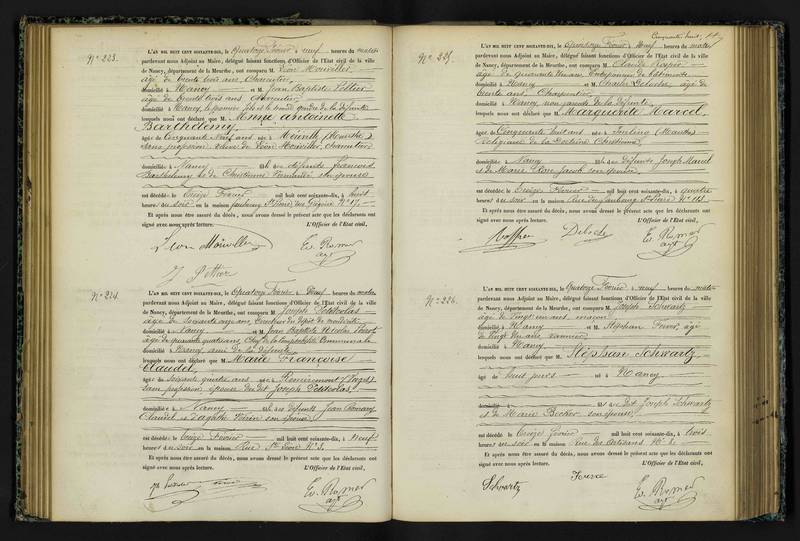 N° 223.
L'AN MIL HUIT CENT SOIXANTE-DIX, le Quatorze Février à neuf heures du matin
pardevant nous Adjoint au Maire, délégué faisant fonctions d'Officier de l'Etat civil de la ville
de Nancy, département de la Meurthe, ont comparu M. Léon Moiviller,
âgé de trente trois ans, Charcutier
domicilié à Nancy et M. Jean Baptiste
âgé de trente trois ans Charcutier
domicilié à Nancy, le premier fils et le second gendre de la défunte
lesquels nous ont déclaré que Marie Antoinette
Barthélemy,
âgée de Cinquante neuf ans née à (Meurthe)
sans profession veuve de Léon Moiviller, charcutier
domiciliée à Nancy fille des défunts François
Barthélemy et de Christienne son épouse
est décédée le treize Février mil huit cent soixante-dix, à huit
heures du soir en la maison faubourg St Pierre
Et après nous être assuré du décès, nous avons dressé le présent acte que les déclarants ont
signé avec nous après lecture. L'Officier de l'Etat civil,
Léon Moiviller
Ev. Romer
ajt
N° 224.
L'AN MIL HUIT CENT SOIXANTE-DIX, le Quatorze Février à neuf heures du matin
pardevant nous Adjoint au Maire, délégué faisant fonctions d'Officier de l'Etat civil de la ville
de Nancy, département de la Meurthe, ont comparu M. Joseph Petitcolas
âgé de soixante ans, du dépôt de mendicité
domicilié à Nancy et M. Jean Baptiste Nicolas
âgé de quarante quatre ans, Chef de la Comptabilité Communale
domicilié à Nancy, ami de la défunte
lesquels nous ont déclaré que Marie Françoise
Claudel,
âgée de Soixante quatre ans née à Remiremont (Vosges)
sans profession épouse du dit Joseph Petitcolas,
domiciliée à Nancy fille des défunts Jean
Claudel et d'Agathe son épouse
est décédée le treize Février mil huit cent soixante-dix, à neuf
heures du soir en la maison Rue St Léon N° 3.
Et après nous être assuré du décès, nous avons dressé le présent acte que les déclarants ont
signé avec nous après lecture. L'Officier de l'Etat civil,
Ev. Romer
ajt
Cinquante huit,
N° 225.
L'AN MIL HUIT CENT SOIXANTE-DIX, le Quatorze Février à neuf heures du matin
pardevant nous Adjoint au Maire, délégué faisant fonctions d'Officier de l'Etat civil de la ville
de Nancy, département de la Meurthe, ont comparu M. Claude
âgé de quarante ans, Entrepreneur de bâtiments
domicilié à Nancy et M. Charles âgé de
trente ans, Charpentier
domicilié à Nancy non parents de la défunte,
lesquels nous ont déclaré que Marguerite Marcel,
âgée de Cinquante huit ans née à (Meurthe)
religieuse de la Doctrine Chrétienne,
domiciliée à Nancy fille des défunts Joseph Marcel
et de Marie Rose Jacob son épouse
est décédée le treize Février mil huit cent soixante-dix, à quatre
heures du soir en la maison Rue du faubourg St Pierre N° 115.
Et après nous être assuré du décès, nous avons dressé le présent acte que les déclarants ont
signé avec nous après lecture. L'Officier de l'Etat civil,
Ev. Romer
ajt
N° 226.
L'AN MIL HUIT CENT SOIXANTE-DIX, le Quatorze Février à neuf heures du matin
pardevant nous Adjoint au Maire, délégué faisant fonctions d'Officier de l'Etat civil de la ville
de Nancy, département de la Meurthe, ont comparu M. Joseph Schwartz
âgé de vingt un ans maçon
domicilié à Nancy et M. Stéphan âgé
de vingt un ans
domicilié à Nancy
lesquels nous ont déclaré que Stéphan Schwartz
âgé de huit jours né à Nancy
domicilié à fils du dit Joseph Schwartz
et de Marie Becker son épouse
est décédé le treize février mil huit cent soixante-dix, à trois
heures du soir en la maison Rue des Artisans
Et après nous être assuré du décès, nous avons dressé le présent acte que les déclarants ont
signé avec nous après lecture. L'Officier de l'Etat civil,
Schwartz
Ev. Romer
ajt